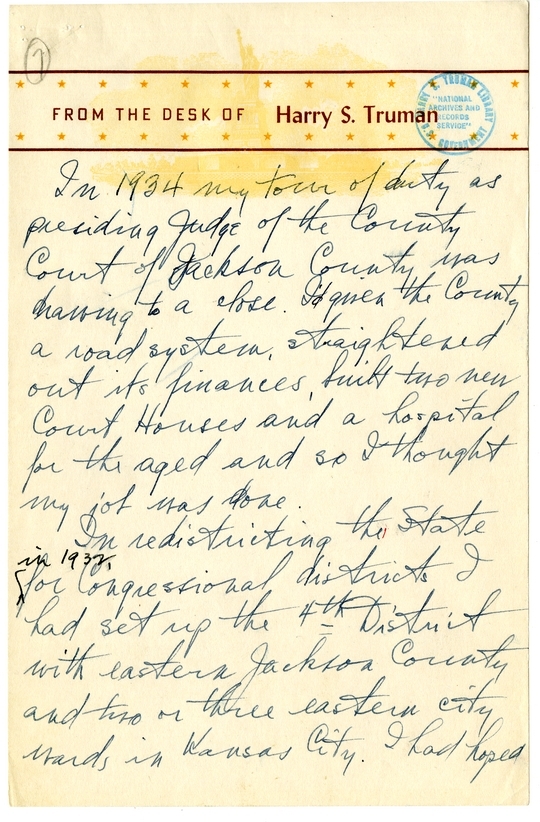 7
FROM THE DESK OF Harry S. Truman
HARRY S. TRUMAN LIBRARY
"NATIONAL
ARCHIVES AND
RECORDS
SERVICE"
U.S. GOVERNMENT
In 1934 my tour of duty as
presiding Judge of the County
Court of Jackson County was
drawing to a close. I'd given the County
a road system, straightened
out its finances, built two new
Court Houses and a hospital
for the aged and so I thought
my job was done.
In redistricting the State
in 1932,
for Congressional districts I
had set up the 4th District
with eastern Jackson County
and two or three eastern city
wards in Kansas City. I had hoped